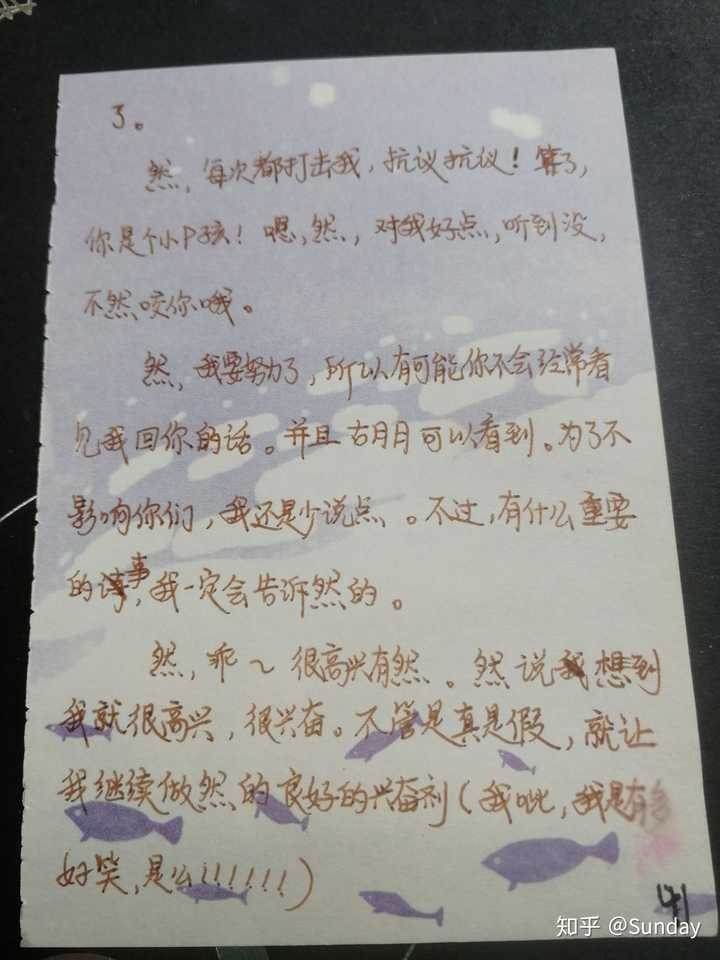 了。
然，每次都打击我，抗议抗议！算了，
你是个小P孩！嗯，然，对我好点，听到没，
不然咬你哦。
然，我要努力了，所以有可能你不会经常看
见我回你的话。并且古月月可以看到。为了不
影响你们，我还是少说点。不过，有什么重要
的事，我一定会告诉然的。
然，乖～很高兴有然。然说想到
我就很高兴，很兴奋。不管是真是假，就让
我继续做然的良好的兴奋剂（我呲，我是有多
好笑，是么！！！！！！）
41
知乎 @Sunday